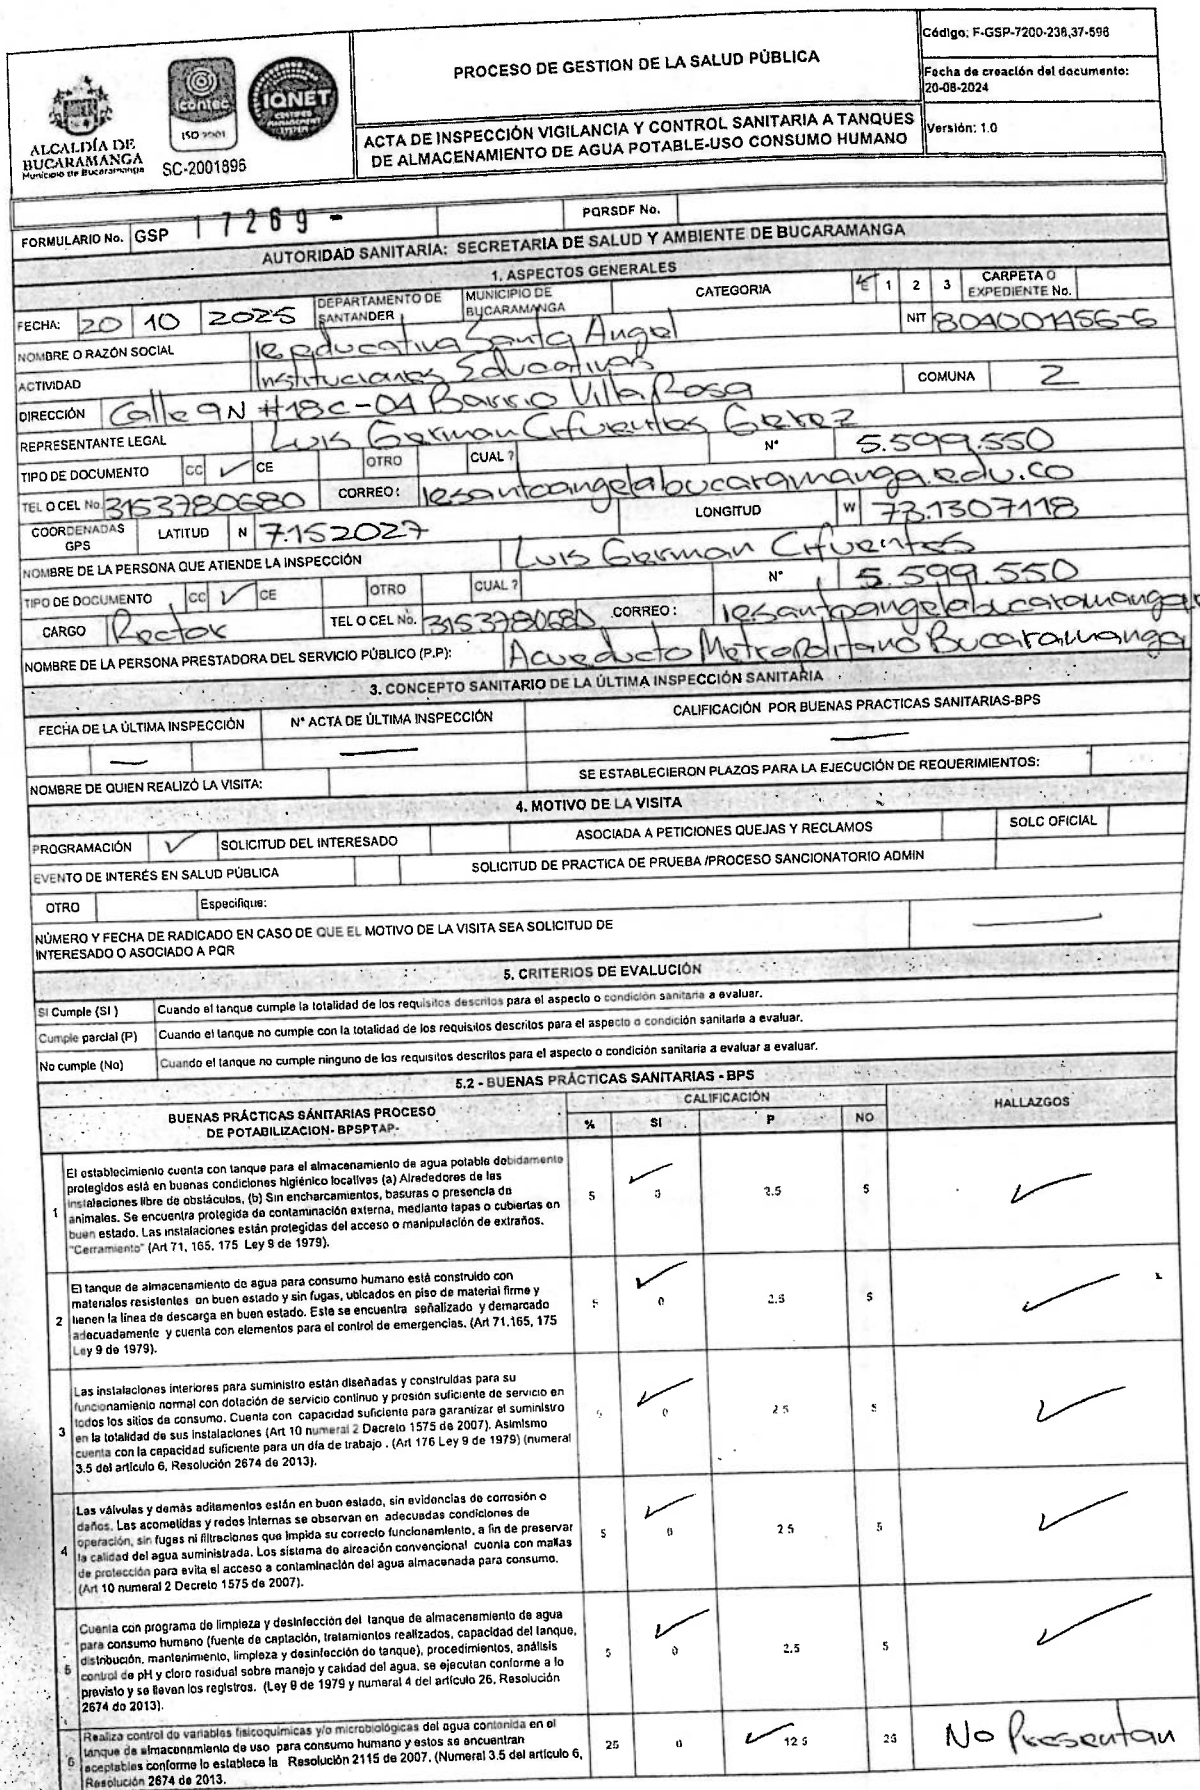 ALCALDÍA DE
BUCARAMANGA
Municipio de Bucaramanga
icontec
ISO 9001
SC-2001896
IQNET
CERTIFIED
MANAGEMENT
SYSTEM
PROCESO DE GESTION DE LA SALUD PÚBLICA
ACTA DE INSPECCIÓN VIGILANCIA Y CONTROL SANITARIA A TANQUES
DE ALMACENAMIENTO DE AGUA POTABLE-USO CONSUMO HUMANO
Código: F-GSP-7200-238,37-598
Fecha de creación del documento:
20-08-2024
Versión: 1.0
FORMULARIO No. GSP 17269 - PQRSDF No.
AUTORIDAD SANITARIA: SECRETARIA DE SALUD Y AMBIENTE DE BUCARAMANGA
1. ASPECTOS GENERALES
FECHA: 20 10 2025 DEPARTAMENTO DE SANTANDER MUNICIPIO DE BUCARAMANGA CATEGORIA 1 2 3 CARPETA O EXPEDIENTE No.
NOMBRE O RAZÓN SOCIAL Ie educativa Santo Angel NIT 804001456-6
ACTIVIDAD Instituciones Educativas
DIRECCIÓN Calle 9N #18C-04 Barrio Villa Rosa COMUNA 2
REPRESENTANTE LEGAL Luis German Cifuentes Gerez
TIPO DE DOCUMENTO CC ✓ CE OTRO CUAL ? N° 5.599.550
TEL O CEL No. 3153780680 CORREO: iesantoangelabucaramanga.edu.co
COORDENADAS GPS LATITUD N 7.152027 LONGITUD W 73.1307118
NOMBRE DE LA PERSONA QUE ATIENDE LA INSPECCIÓN Luis German Cifuentes
TIPO DE DOCUMENTO CC ✓ CE OTRO CUAL ? N° 5.599.550
CARGO Rector TEL O CEL No. 3153780680 CORREO: iesantoangelabucaramanga
NOMBRE DE LA PERSONA PRESTADORA DEL SERVICIO PÚBLICO (P.P): Acueducto Metropolitano Bucaramanga
3. CONCEPTO SANITARIO DE LA ÚLTIMA INSPECCIÓN SANITARIA
FECHA DE LA ÚLTIMA INSPECCIÓN N° ACTA DE ÚLTIMA INSPECCIÓN CALIFICACIÓN POR BUENAS PRACTICAS SANITARIAS-BPS
— — —
NOMBRE DE QUIEN REALIZÓ LA VISITA: SE ESTABLECIERON PLAZOS PARA LA EJECUCIÓN DE REQUERIMIENTOS:
4. MOTIVO DE LA VISITA
PROGRAMACIÓN ✓ SOLICITUD DEL INTERESADO ASOCIADA A PETICIONES QUEJAS Y RECLAMOS SOLC OFICIAL
EVENTO DE INTERÉS EN SALUD PÚBLICA SOLICITUD DE PRACTICA DE PRUEBA /PROCESO SANCIONATORIO ADMIN
OTRO Especifique:
NÚMERO Y FECHA DE RADICADO EN CASO DE QUE EL MOTIVO DE LA VISITA SEA SOLICITUD DE
INTERESADO O ASOCIADO A PQR —
5. CRITERIOS DE EVALUCIÓN
SI Cumple (SI ) Cuando el tanque cumple la totalidad de los requisitos descritos para el aspecto o condición sanitaria a evaluar.
Cumple parcial (P) Cuando el tanque no cumple con la totalidad de los requisitos descritos para el aspecto o condición sanitaria a evaluar.
No cumple (No) Cuando el tanque no cumple ninguno de los requisitos descritos para el aspecto o condición sanitaria a evaluar a evaluar.
5.2 - BUENAS PRÁCTICAS SANITARIAS - BPS
BUENAS PRÁCTICAS SANITARIAS PROCESO
DE POTABILIZACION- BPSPTAP-
CALIFICACIÓN
% SI P NO
HALLAZGOS
1 El establecimiento cuenta con tanque para el almacenamiento de agua potable debidamente
protegidos está en buenas condiciones higiénico locativas (a) Alrededores de las
instalaciones libre de obstáculos, (b) Sin encharcamientos, basuras o presencia de
animales. Se encuentra protegida de contaminación externa, mediante tapas o cubiertas en
buen estado. Las instalaciones están protegidas del acceso o manipulación de extraños.
"Cerramiento" (Art 71, 165, 175 Ley 9 de 1979).
5 ✓ 0 2.5 5 ✓
2 El tanque de almacenamiento de agua para consumo humano está construido con
materiales resistentes en buen estado y sin fugas, ubicados en piso de material firme y
tienen la línea de descarga en buen estado. Este se encuentra señalizado y demarcado
adecuadamente y cuenta con elementos para el control de emergencias. (Art 71,165, 175
Ley 9 de 1979).
5 ✓ 0 2.5 5 ✓
3 Las instalaciones interiores para suministro están diseñadas y construidas para su
funcionamiento normal con dotación de servicio continuo y presión suficiente de servicio en
todos los sitios de consumo. Cuenta con capacidad suficiente para garantizar el suministro
en la totalidad de sus instalaciones (Art 10 numeral 2 Decreto 1575 de 2007). Asimismo
cuenta con la capacidad suficiente para un día de trabajo . (Art 176 Ley 9 de 1979) (numeral
3.5 del artículo 6, Resolución 2674 de 2013).
5 ✓ 0 2.5 5 ✓
4 Las válvulas y demás aditamentos están en buen estado, sin evidencias de corrosión o
daños. Las acometidas y redes internas se observan en adecuadas condiciones de
operación, sin fugas ni filtraciones que impida su correcto funcionamiento, a fin de preservar
la calidad del agua suministrada. Los sistema de aireación convencional cuenta con mallas
de protección para evita el acceso a contaminación del agua almacenada para consumo.
(Art 10 numeral 2 Decreto 1575 de 2007).
5 ✓ 0 2.5 5 ✓
5 Cuenta con programa de limpieza y desinfección del tanque de almacenamiento de agua
para consumo humano (fuente de captación, tratamientos realizados, capacidad del tanque,
distribución, mantenimiento, limpieza y desinfección de tanque), procedimientos, análisis
control de pH y cloro residual sobre manejo y calidad del agua, se ejecutan conforme a lo
previsto y se llevan los registros. (Ley 9 de 1979 y numeral 4 del artículo 26, Resolución
2674 de 2013).
5 ✓ 0 2.5 5 ✓
6 Realiza control de variables fisicoquímicas y/o microbiológicas del agua contenida en el
tanque de almacenamiento de uso para consumo humano y estos se encuentran
aceptables conforme lo establece la Resolución 2115 de 2007. (Numeral 3.5 del artículo 6,
Resolución 2674 de 2013.
25 0 ✓ 12.5 25 No Presentan